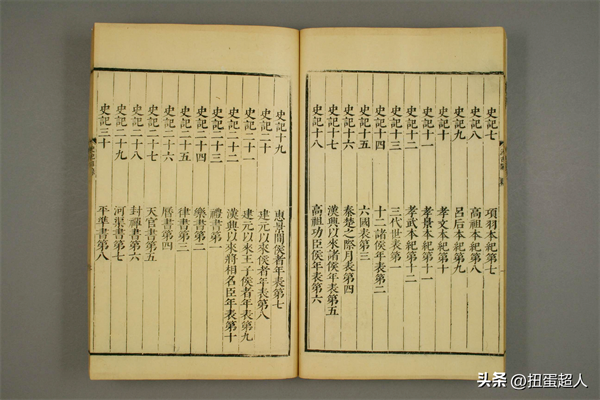 史記七 項羽本紀第七
史記八 高祖本紀第八
史記九 呂后本紀第九
史記十 孝文本紀第十
史記十一 孝景本紀第十一
史記十二 孝武本紀第十二
史記十三 三代世表第一
史記十四 十二諸侯年表第二
史記十五 六國表第三
史記十六 秦楚之際月表第四
史記十七 漢興以來諸侯年表第五
史記十八 高祖功臣侯年表第六
史記十九 惠景間侯者年表第七
史記二十 建元以來侯者年表第八
史記二十一 建元以來王子侯者年表第九
史記二十二 漢興以來將相名臣年表第十
史記二十三 禮書第一
史記二十四 樂書第二
史記二十五 律書第三
史記二十六 曆書第四
史記二十七 天官書第五
史記二十八 封禪書第六
史記二十九 河渠書第七
史記三十 平準書第八
头条 @扭蛋超人